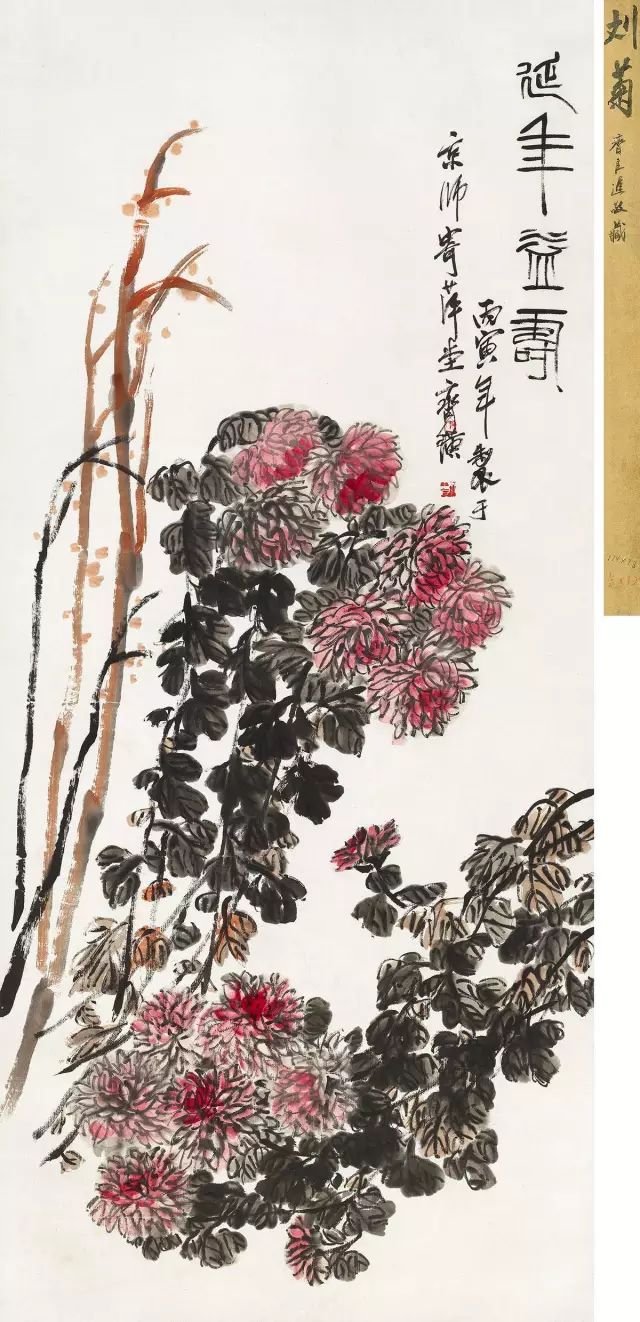 延年益壽
丙寅年製于
京師寄萍堂齊璜
刈菊
齊良
藏